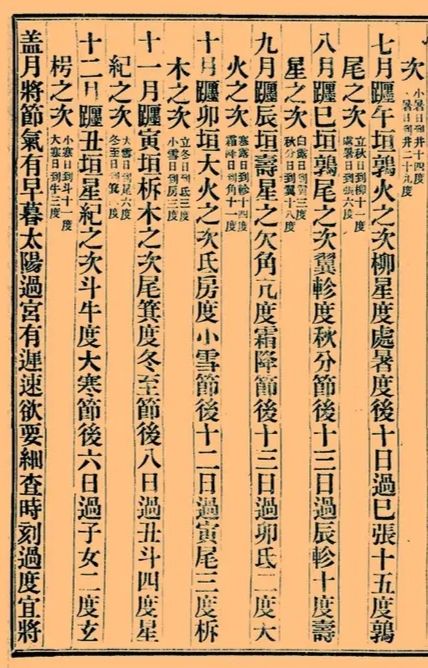 次 小暑日到井十四度 大暑日到井二十九度
七月日躔午垣鶉火之次柳星度處暑度後十日過巳張十五度鶉
尾之次 立秋日到柳十一度 處暑日到張六度
八月日躔巳垣鶉尾之次翼軫度秋分節後十三日過辰軫十度壽
星之次 秋分日到翼十八度
九月日躔辰垣壽星之次角亢度霜降節後十三日過卯氐二度大
火之次 寒露日到軫十四度 霜降日到角十一度
十月日躔卯垣大火之次氐房度小雪節後十二日過寅尾三度柝
木之次 立冬日到氐三度 小雪日到房三度
十一月日躔寅垣柝木之次尾箕度冬至節後八日過丑斗四度星
紀之次 大雪日到尾六度 冬至日到箕度
十二月日躔丑垣星紀之次斗牛度大寒節後六日過子女二度玄
枵之次 小寒日到斗十一度 大寒日到牛三度
盖月將節氣有早暮太陽過宮有遲速欲要細查時刻過度宜將